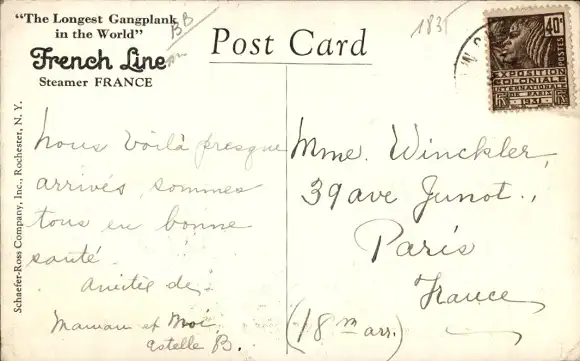 "The Longest Gangplank
in the World"
French Line
Steamer FRANCE
BB
Post Card
183
40c
POSTES
EXPOSITION
COLONIALE
INTERNATIONALE
DE PARIS
1931
Schaefer-Ross Company, Inc., Rochester, N. Y.
nous voilà presque
arrivés sommes
tous en bonne
santé.
Amitié de
Maman et Moi
Estelle B.
Mme. Winckler,
39 ave Junot.,
Paris
France
(18 m arr.)